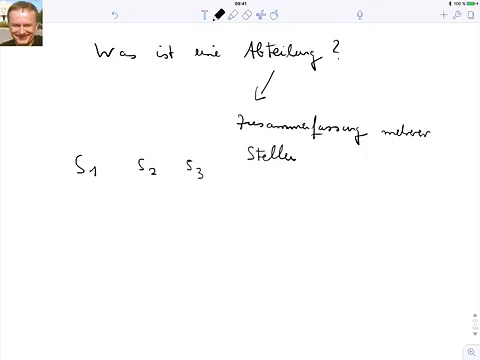 09:41
100 %
Was ist eine Abteilung?
Zusammenfassung mehrerer
Stellen
S1 S2 S3